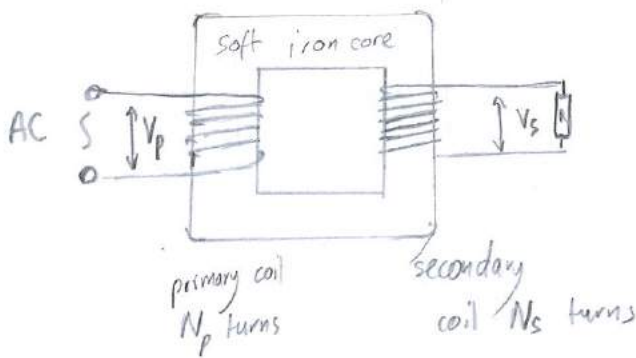 soft iron core
AC
Vp
Vs
primary coil
Np turns
secondary
coil Ns turns